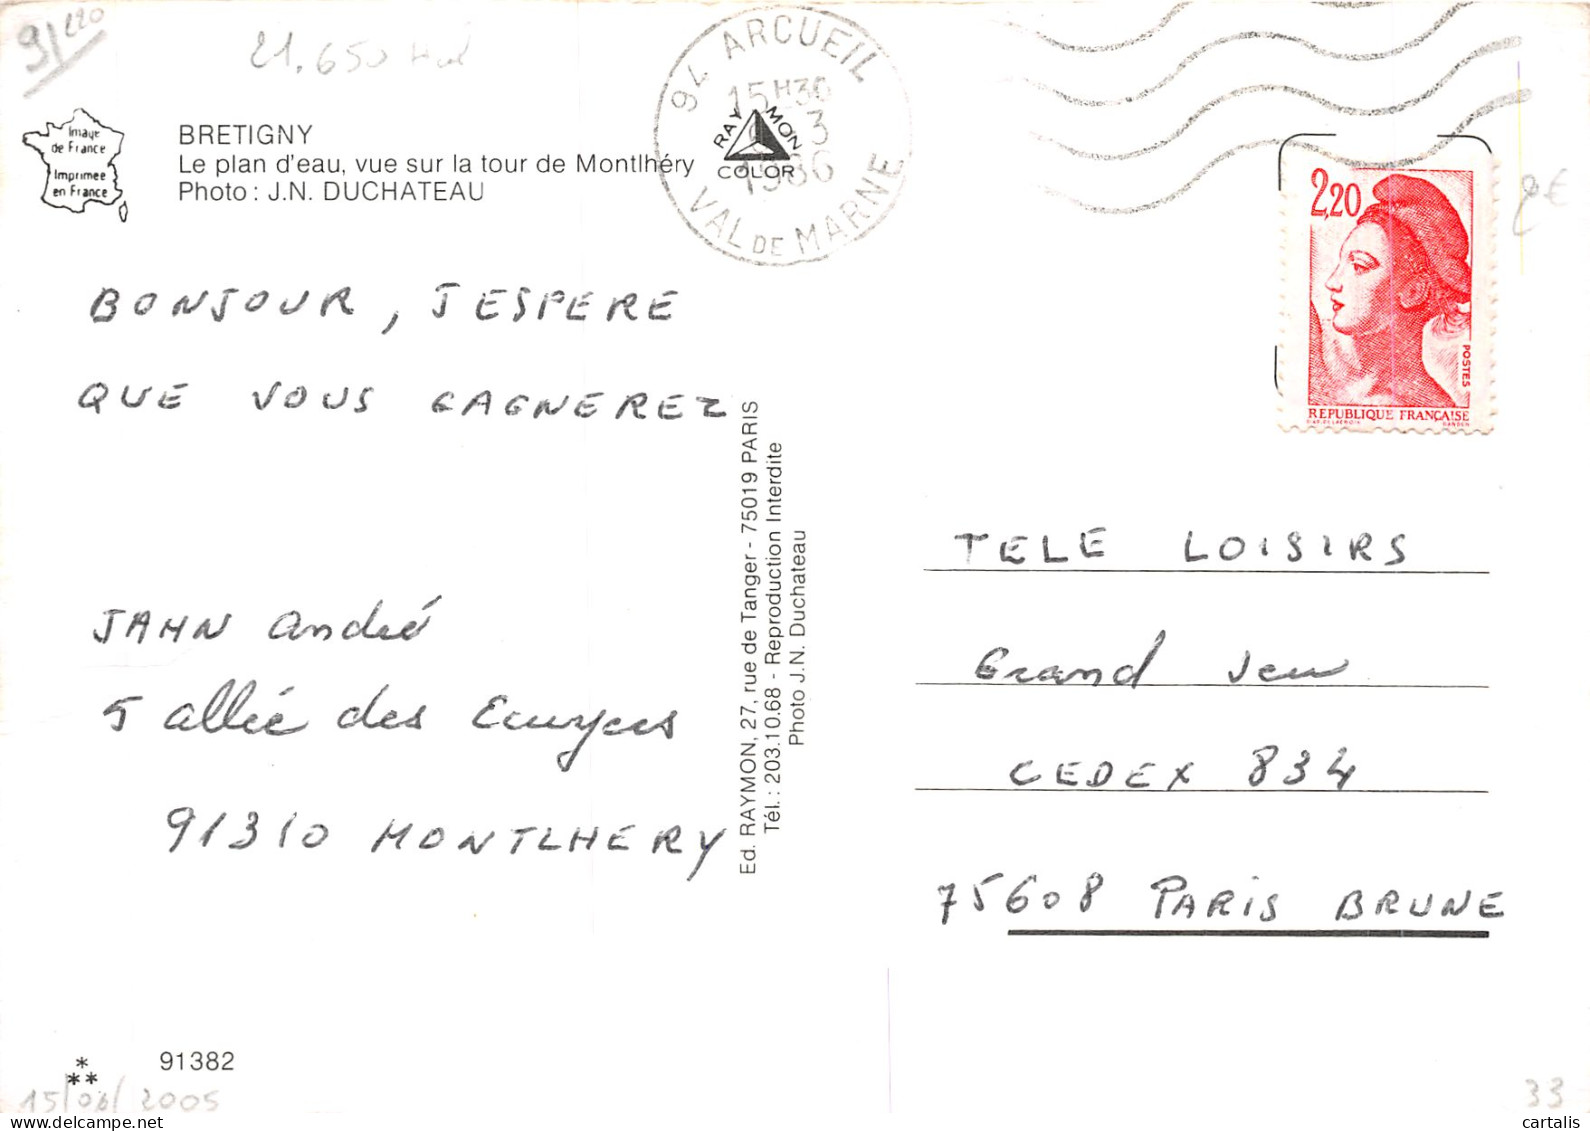 91/220
21.650
Image
de France
Imprimee
en France
BRETIGNY
Le plan d'eau, vue sur la tour de Montlhéry
Photo : J.N. DUCHATEAU
94 ARCUEIL
15H30
3
1986
VAL DE MARNE
RAYMON
COLOR
2,20
POSTES
REPUBLIQUE FRANÇAISE
2€
BONJOUR, J ESPERE
QUE VOUS GAGNEREZ
JAHN André
5 allée des
91310 MONTLHERY
Ed. RAYMON, 27, rue de Tanger - 75019 PARIS
Tél. : 203.10.68 - Reproduction Interdite
Photo J.N. Duchateau
TELE LOISIRS
Grand Jeu
CEDEX 834
75608 PARIS BRUNE
*
** 91382
15/06/2005
33
cartalis